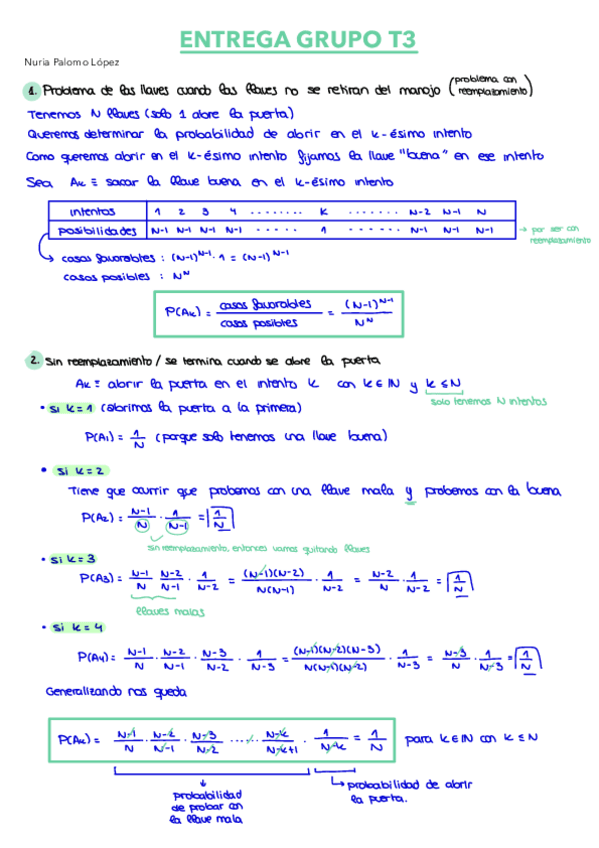 ENTREGA GRUPO T3
Nuria Palomo López
1. Problema de las llaves cuando las llaves no se retiran del manojo (problema con reemplazamiento)
Tenemos N llaves (solo 1 abre la puerta)
Queremos determinar la probabilidad de abrir en el k-ésimo intento
Como queremos abrir en el k-ésimo intento fijamos la llave "buena" en ese intento
Sea Ak ≡ sacar la llave buena en el k-ésimo intento
intentos 1 2 3 4 ........ K ....... N-2 N-1 N
posibilidades N-1 N-1 N-1 N-1 ..... 1 ..... N-1 N-1 N-1 → por ser con reemplazamiento
casos favorables : (N-1)^N-1 · 1 = (N-1)^N-1
casos posibles : N^N
P(Ak) = casos favorables / casos posibles = (N-1)^N-1 / N^N
2. Sin reemplazamiento / se termina cuando se abre la puerta
Ak ≡ abrir la puerta en el intento k con k ∈ IN y k ≤ N
solo tenemos N intentos
• Si k = 1 (abrimos la puerta a la primera)
P(A1) = 1/N (porque solo tenemos una llave buena)
• Si k = 2
Tiene que ocurrir que probemos con una llave mala y probemos con la buena
P(A2) = N-1/N · 1/N-1 = 1/N
sin reemplazamiento, entonces vamos quitando llaves
• Si k = 3
P(A3) = N-1/N · N-2/N-1 · 1/N-2 = (N-1)(N-2)/N(N-1) · 1/N-2 = N-2/N · 1/N-2 = 1/N
llaves malas
• Si k = 4
P(A4) = N-1/N · N-2/N-1 · N-3/N-2 · 1/N-3 = (N-1)(N-2)(N-3)/N(N-1)(N-2) · 1/N-3 = N-3/N · 1/N-3 = 1/N
Generalizando nos queda
P(Ak) = N-1/N · N-2/N-1 · N-3/N-2 ..... N-k/N-k+1 · 1/N-k = 1/N para k ∈ IN con k ≤ N
probabilidad de probar con la llave mala
probabilidad de abrir la puerta.